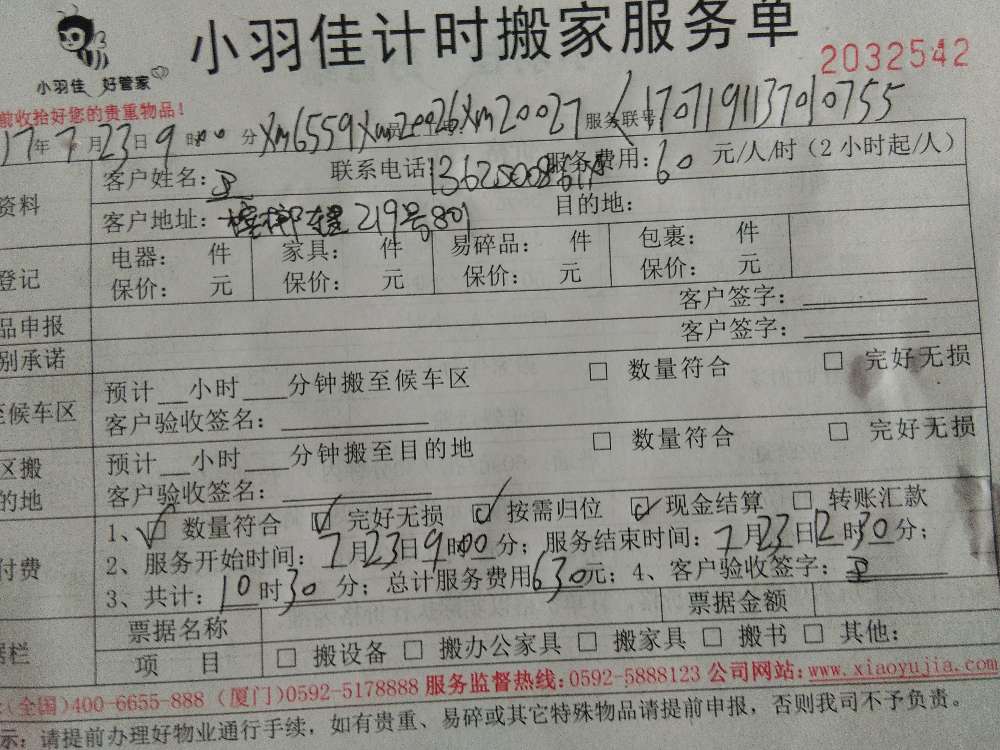 小羽佳计时搬家服务单
小羽佳 好管家
2032542
前收拾好您的贵重物品!
17年7月23日9时00分 Xm6559 Xm20026 Xm20027 服务联号 1707191137010755
资料
客户姓名: 联系电话: 服务费用:60元/人/时(2小时起/人)
客户地址: 219号801 目的地:
登记
电器: 件 家具: 件 易碎品: 件 包裹: 件
保价: 元 保价: 元 保价: 元 保价: 元
品申报 客户签字:
别承诺 客户签字:
至候车区
预计__小时___分钟搬至候车区 □ 数量符合 □ 完好无损
客户验收签名:
区搬
的地
预计__小时___分钟搬至目的地 □ 数量符合 □ 完好无损
客户验收签名:
付费
1、☑ 数量符合 ☑ 完好无损 ☑ 按需归位 ☑ 现金结算 □ 转账汇款
2、服务开始时间:7月23日9时00分;服务结束时间:7月23日12时30分;
3、共计:10时30分;总计服务费用630元;4、客户验收签字:
据栏
票据名称 票据金额
项 目 □ 搬设备 □ 搬办公家具 □ 搬家具 □ 搬书 □ 其他:
:(全国)400-6655-888 (厦门)0592-5178888 服务监督热线:0592-5888123 公司网站:www.xiaoyujia.com
示:请提前办理好物业通行手续,如有贵重、易碎或其它特殊物品请提前申报,否则我司不予负责。